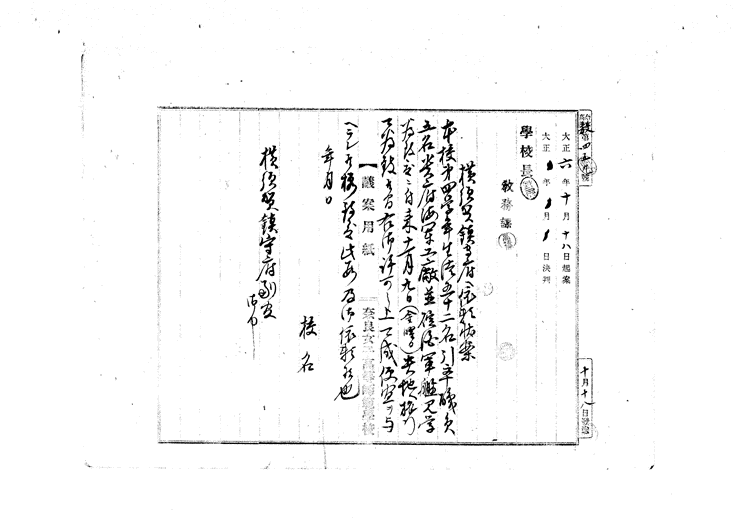 教第四五九號
大正六年十月十八日起案
大正 年 月 日決判
學校長
教務課
横須賀鎮守府ヘ依頼状案
本校第四学年生徒五十二名引率職員
五名貴府海軍工廠並碇泊軍艦見学
為致度ニ付来十一月九日(金曜)其地
可為致ニ付右御許可ノ上可成便宜ヲ与
ヘラレ候様致度此段及御依頼候也
年月日
校名
横須賀鎮守府副官
御中
議案用紙
奈良女子高等師範學校
十月十八日發送